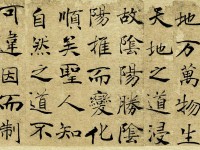 地万萬物生
天地之道浸
故陰陽勝陰
陽推而變化
順矣聖人知
自然之道不
可違因而制